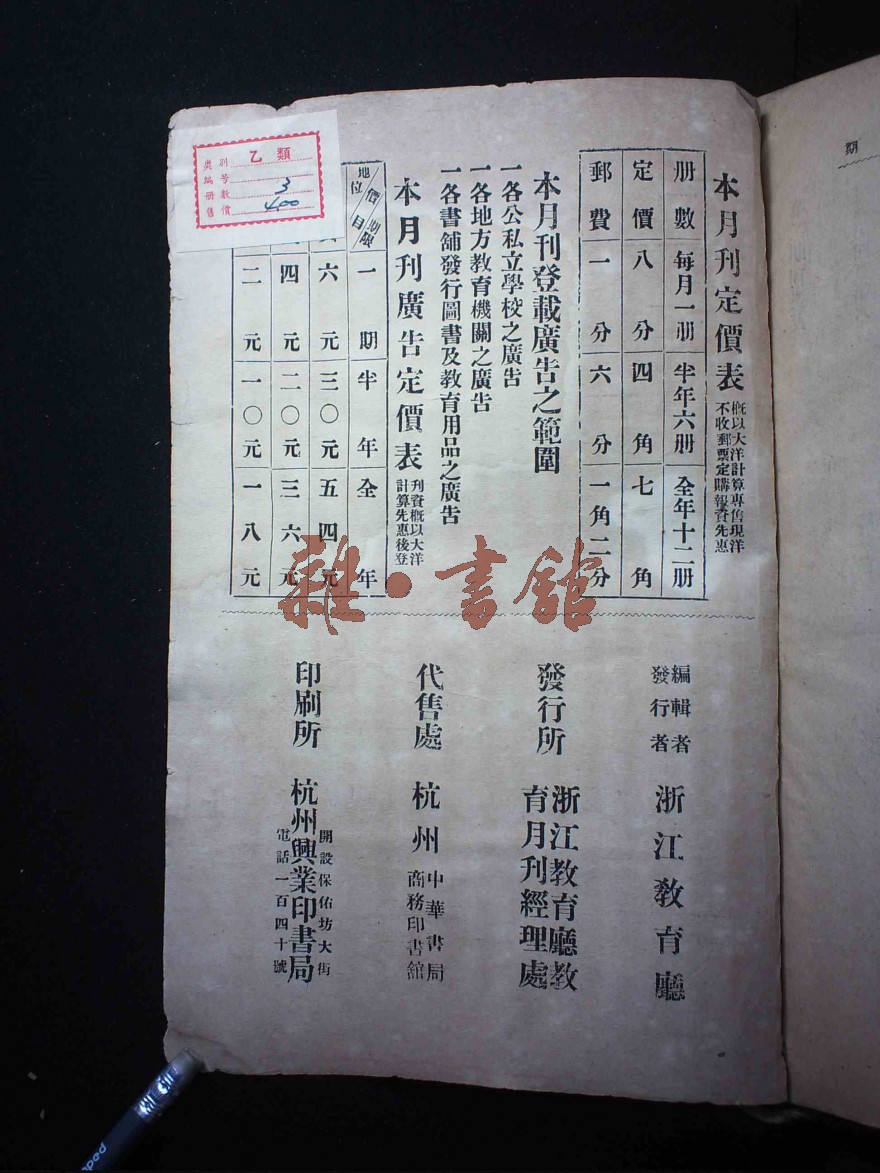 本月刊定價表
概以大洋計算專售現洋
不收郵票定購報費先惠
册數 每月一册 半年六册 全年十二册
定價 八分 四角 七角
郵費 一分 六分 一角二分
本月刊登載廣告之範圍
一各公私立學校之廣告
一各地方教育機關之廣告
一各書舖發行圖書及教育用品之廣告
本月刊廣告定價表
刊資概以大洋
計算先惠後登
地位 價目 期限 一期 半年 全年
六元 三〇元 五四元
四元 二〇元 三六元
二元 一〇元 一八元
編輯者
發行者
浙江教育廳
發行所 浙江教育廳教
育月刊經理處
代售處 杭州 中華書局
商務印書館
印刷所 杭州興業印書局
開設保佑坊大街
電話一百四十號
乙類
類別
編号
册數 3
售價 4.00
雜·書館
期